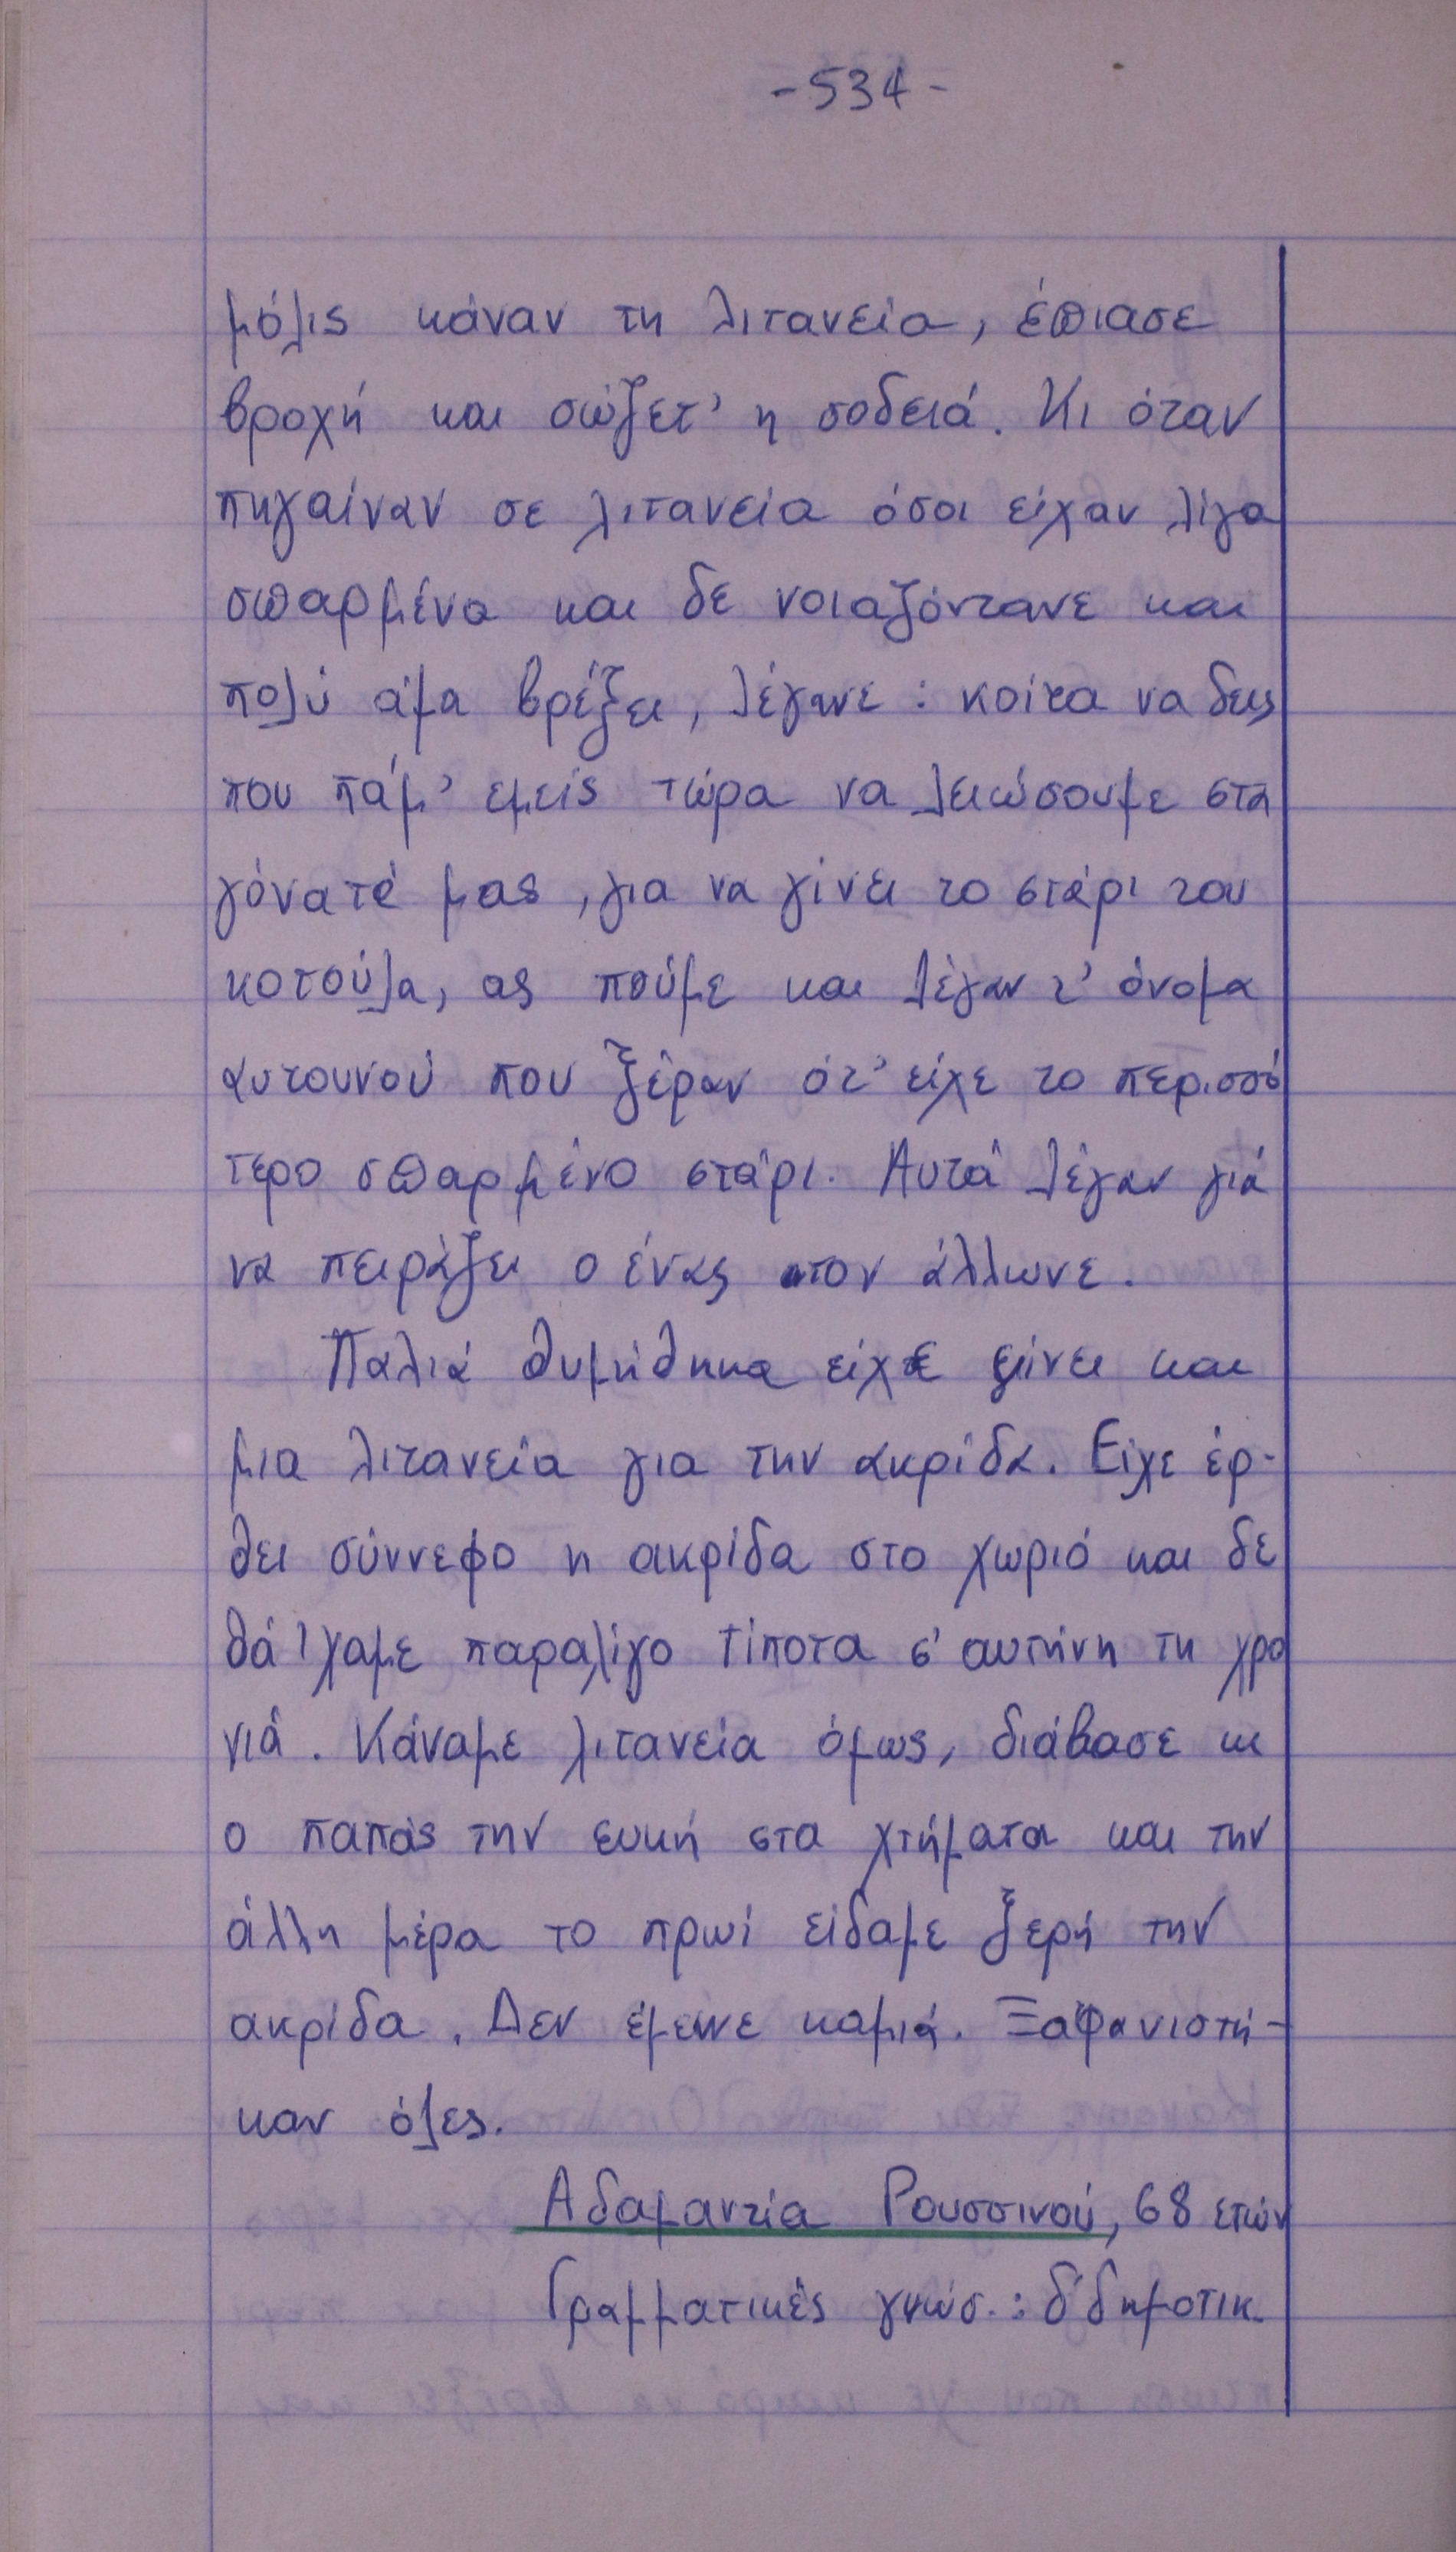 -534-
μόλις κάναν τη λιτανεία, έπιασε
βροχή και σώζετ' η σοδειά. Κι όταν
πηγαίναν σε λιτανεία όσοι είχαν λίγα
σπαρμένα και δε νοιαζόντανε και
πολύ άμα βρέξει, λέγανε : κοίτα να δεις
που πάμ' εμείς τώρα να λειώσουμε στα
γόνατά μας, για να γίνει το στάρι του
κοτούλα, ας πούμε και λέγαν τ' όνομα
αυτουνού που ξέραν ότ' είχε το περισσό
τερο σπαρμένο στάρι. Αυτά λέγαν γιά
να πειράξει ο ένας τον άλλωνε.
Παλιά θυμήθηκα είχε γίνει και
μια λιτανεία για την ακρίδα. Είχε έρ-
θει σύννεφο η ακρίδα στο χωριό και δε
θά 'χαμε παραλίγο τίποτα σ' αυτήνη τη χρο
νιά. Κάναμε λιτανεία όμως, διάβασε κι
ο παπάς την ευκή στα χτήματα και την
άλλη μέρα το πρωί είδαμε ξερή την
ακρίδα. Δεν έμεινε καμιά. Ξαφανιστή-
καν όλες.
Αδαμαντία Ρουσσινού, 68 ετών
Γραμματικές γνώσ. : δ' δημοτικ.